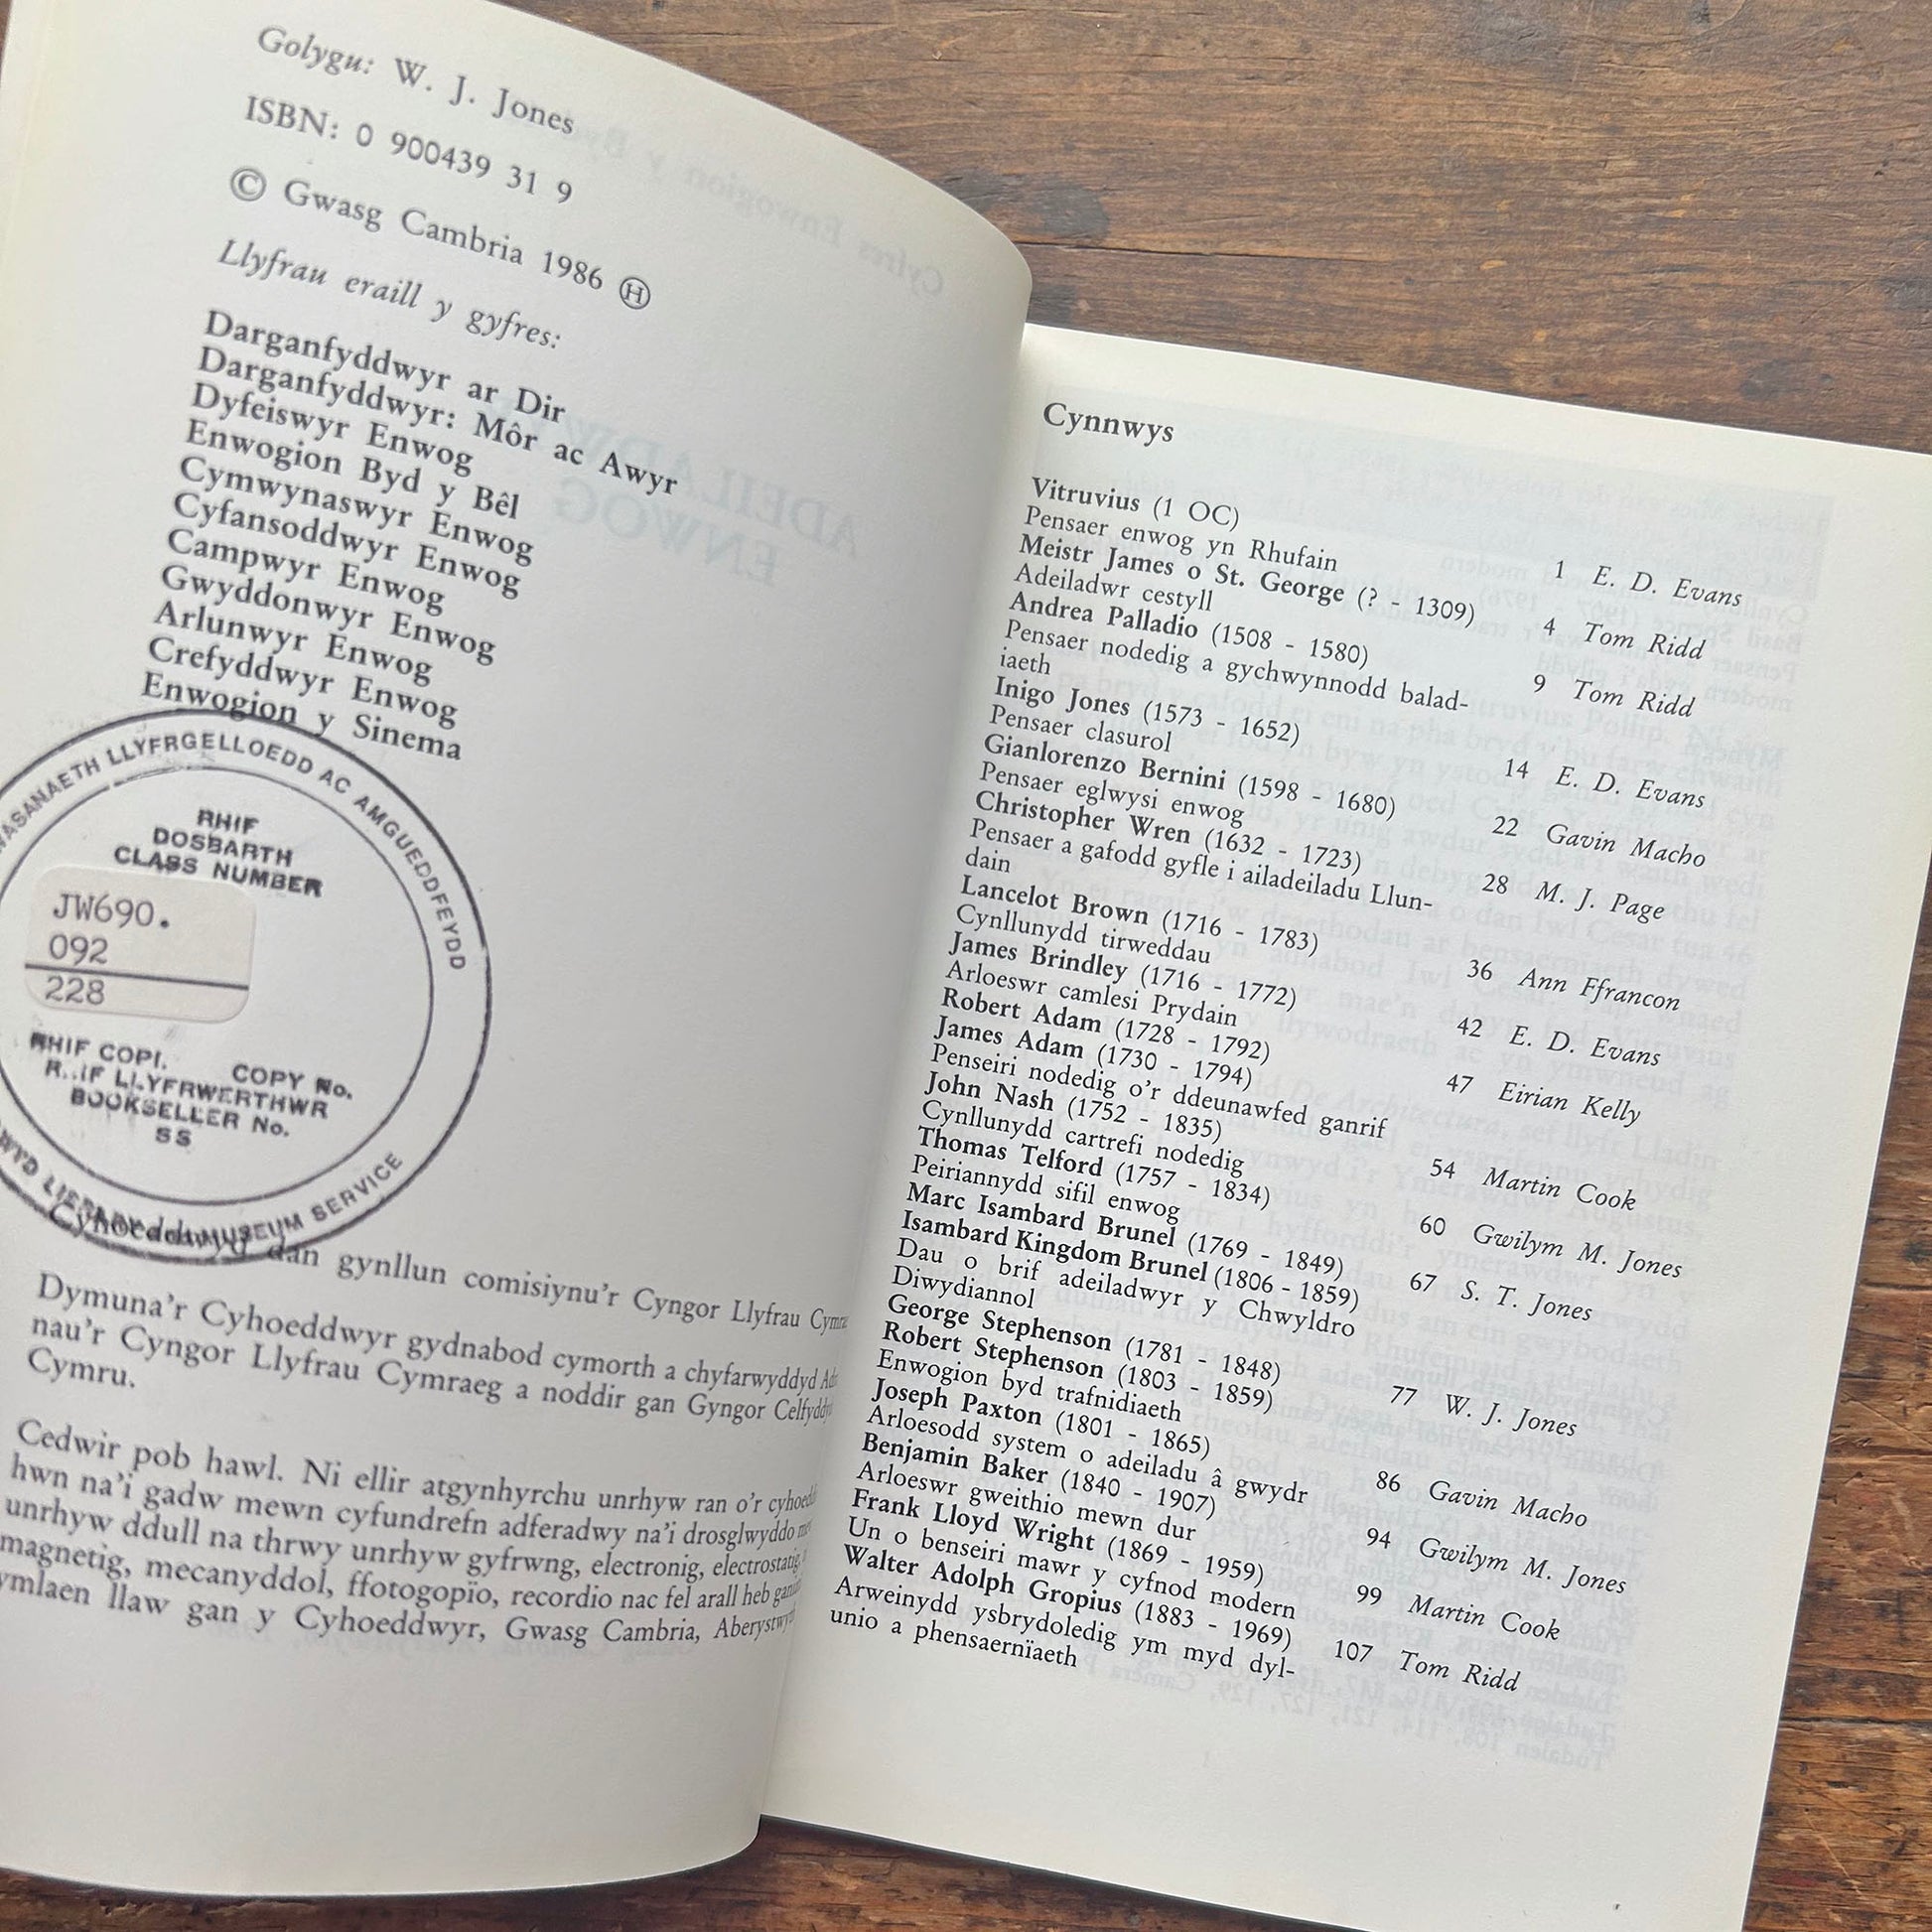 Golygu: W. J. Jones
ISBN: 0 900439 31 9
© Gwasg Cambria 1986 Ⓗ
Llyfrau eraill y gyfres:
Darganfyddwyr ar Dir
Darganfyddwyr: Môr ac Awyr
Dyfeiswyr Enwog
Enwogion Byd y Bêl
Cymwynaswyr Enwog
Cyfansoddwyr Enwog
Campwyr Enwog
Gwyddonwyr Enwog
Arlunwyr Enwog
Crefyddwyr Enwog
Enwogion y Sinema
LLYFRGELLOEDD AC AMGUEDDFEYDD
RHIF
DOSBARTH
CLASS NUMBER
JW690.
092
228
RHIF COPI. COPY No.
LLYFRWERTHWR
BOOKSELLER No.
SS
MUSEUM SERVICE
Cyhoeddwyd dan gynllun comisiynu'r Cyngor Llyfrau
Dymuna'r Cyhoeddwyr gydnabod cymorth a chyfarwyddyd
nau'r Cyngor Llyfrau Cymraeg a noddir gan Gyngor
Cymru.
Cedwir pob hawl. Ni ellir atgynhyrchu unrhyw ran o'r
hwn na'i gadw mewn cyfundrefn adferadwy na'i drosglwyddo
unrhyw ddull na thrwy unrhyw gyfrwng, electronig, electrostatig,
magnetig, mecanyddol, ffotogopïo, recordio nac fel arall heb
ymlaen llaw gan y Cyhoeddwyr, Gwasg Cambria,
Cynnwys
Vitruvius (1 OC)
Pensaer enwog yn Rhufain 1 E. D. Evans
Meistr James o St. George (? - 1309)
Adeiladwr cestyll 4 Tom Ridd
Andrea Palladio (1508 - 1580)
Pensaer nodedig a gychwynnodd balad- 9 Tom Ridd
iaeth
Inigo Jones (1573 - 1652)
Pensaer clasurol 14 E. D. Evans
Gianlorenzo Bernini (1598 - 1680)
Pensaer eglwysi enwog 22 Gavin Macho
Christopher Wren (1632 - 1723)
Pensaer a gafodd gyfle i ailadeiladu Llun- 28 M. J. Page
dain
Lancelot Brown (1716 - 1783)
Cynllunydd tirweddau 36 Ann Ffrancon
James Brindley (1716 - 1772)
Arloeswr camlesi Prydain 42 E. D. Evans
Robert Adam (1728 - 1792)
James Adam (1730 - 1794)
Penseiri nodedig o'r ddeunawfed ganrif 47 Eirian Kelly
John Nash (1752 - 1835)
Cynllunydd cartrefi nodedig 54 Martin Cook
Thomas Telford (1757 - 1834)
Peiriannydd sifil enwog 60 Gwilym M. Jones
Marc Isambard Brunel (1769 - 1849)
Isambard Kingdom Brunel (1806 - 1859)
Dau o brif adeiladwyr y Chwyldro 67 S. T. Jones
Diwydiannol
George Stephenson (1781 - 1848)
Robert Stephenson (1803 - 1859)
Enwogion byd trafnidiaeth 77 W. J. Jones
Joseph Paxton (1801 - 1865)
Arloesodd system o adeiladu â gwydr 86 Gavin Macho
Benjamin Baker (1840 - 1907)
Arloeswr gweithio mewn dur 94 Gwilym M. Jones
Frank Lloyd Wright (1869 - 1959)
Un o benseiri mawr y cyfnod modern 99 Martin Cook
Walter Adolph Gropius (1883 - 1969)
Arweinydd ysbrydoledig ym myd dyl- 107 Tom Ridd
unio a phensaernïaeth